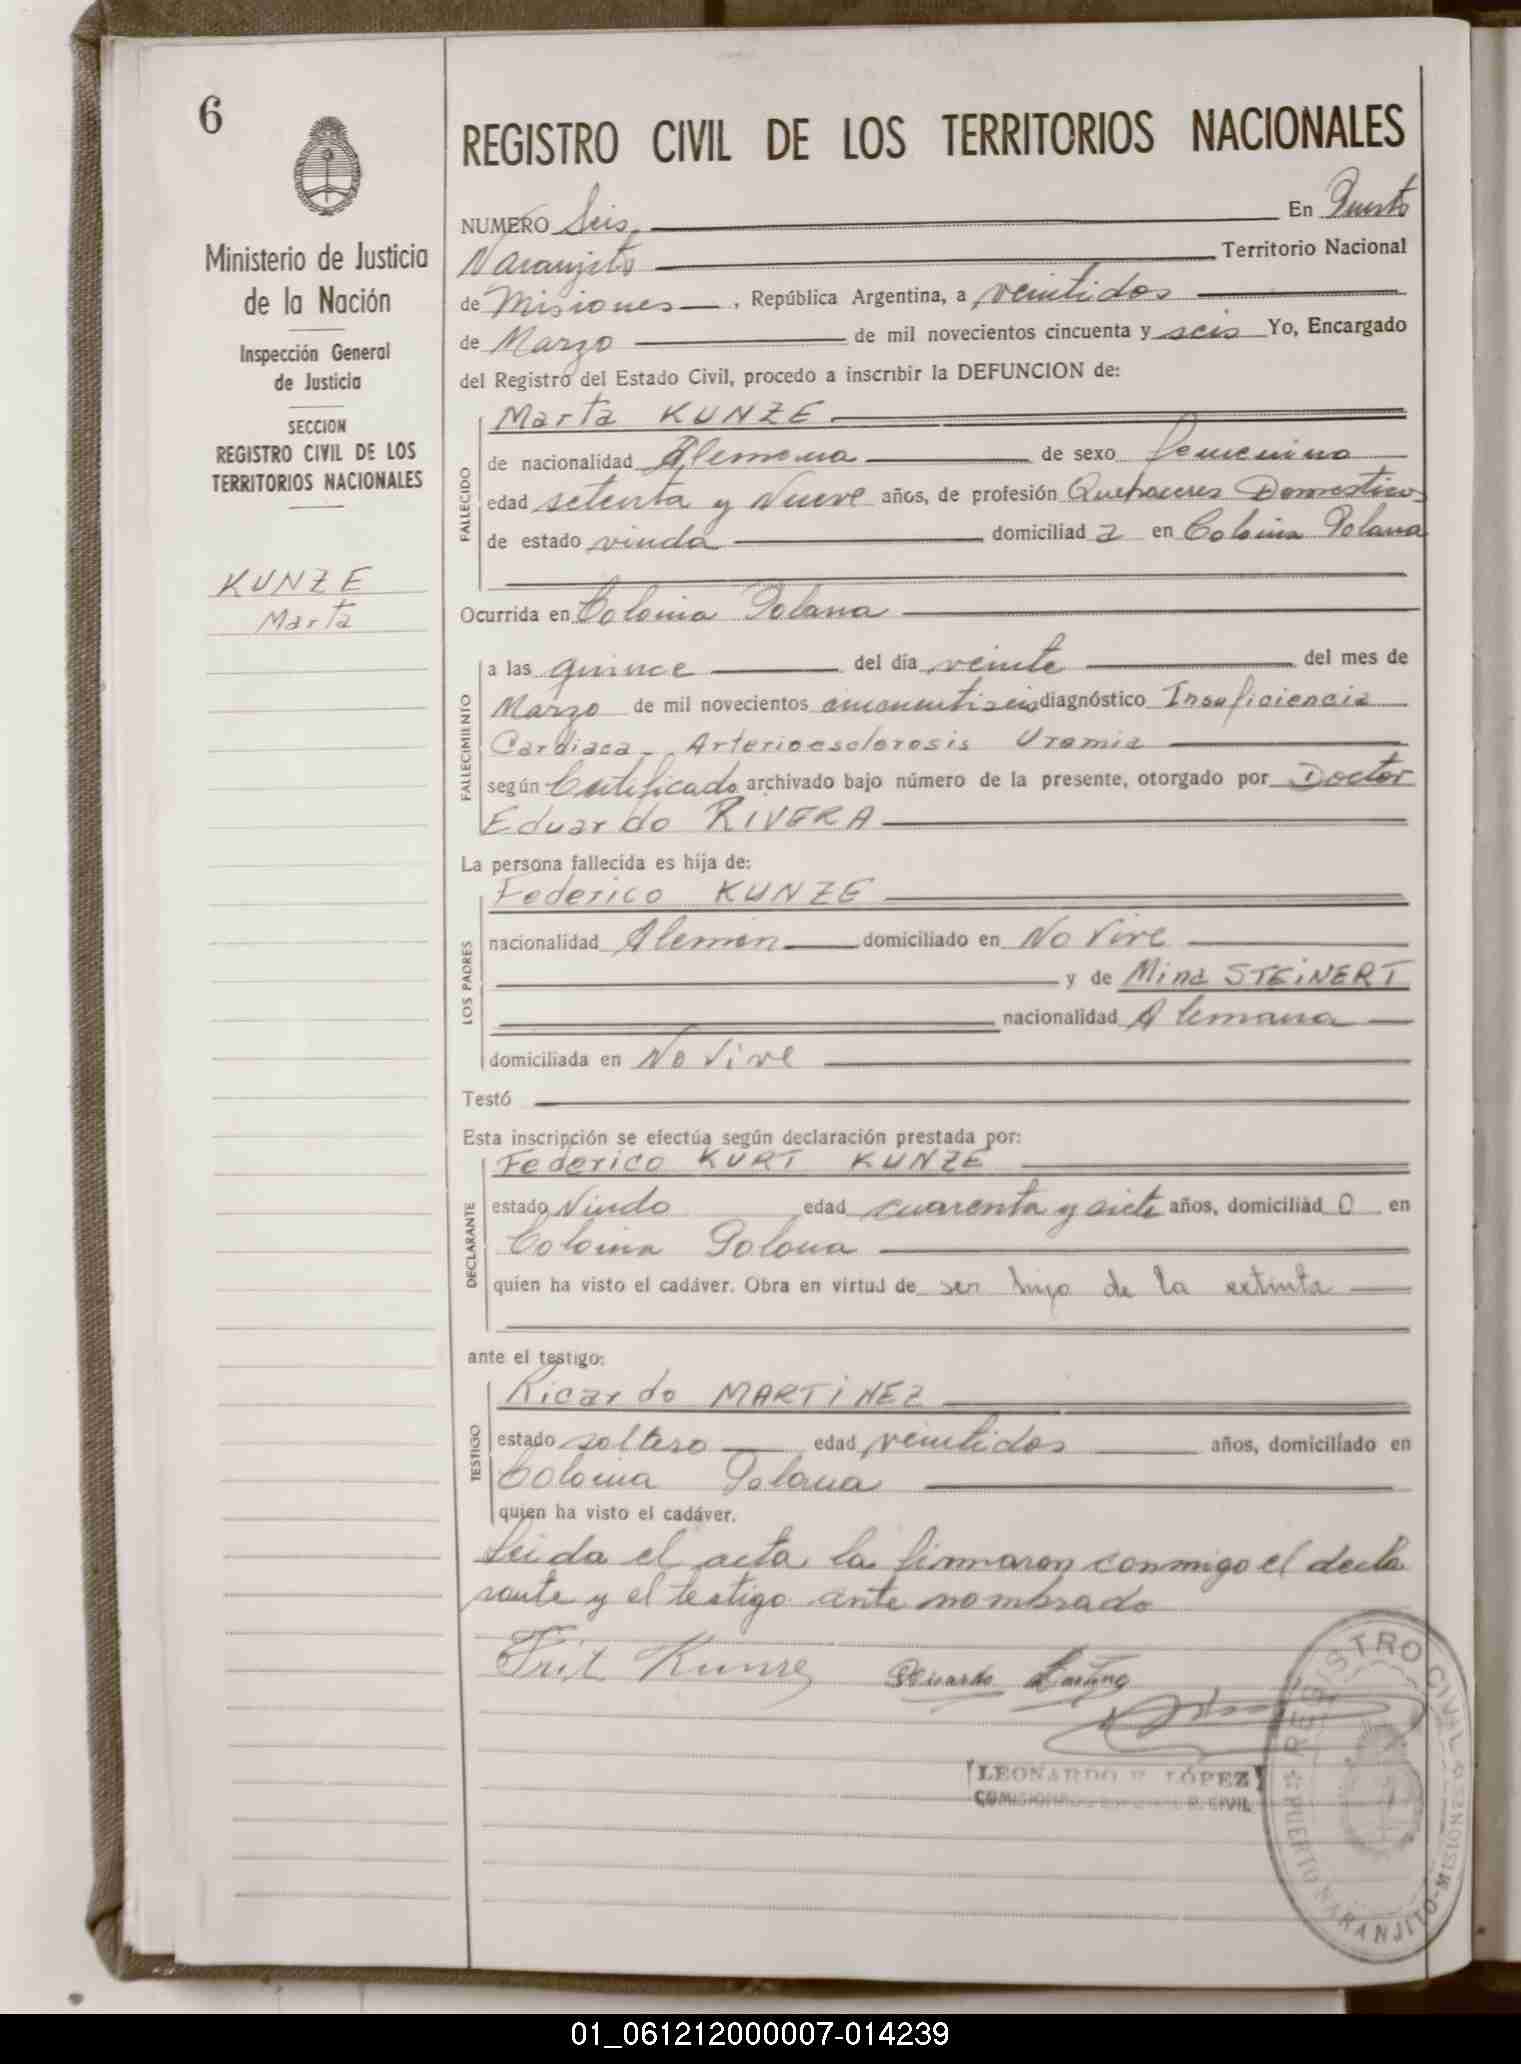 6
Ministerio de Justicia
de la Nación
Inspección General
de Justicia
SECCION
REGISTRO CIVIL DE LOS
TERRITORIOS NACIONALES
KUNZE
Marta
REGISTRO CIVIL DE LOS TERRITORIOS NACIONALES
NUMERO Seis En Puerto
Naranjito Territorio Nacional
de Misiones, República Argentina, a veintidos
de Marzo de mil novecientos cincuenta y seis Yo, Encargado
del Registro del Estado Civil, procedo a inscribir la DEFUNCION de:
Marta KUNZE
FALLECIDO
de nacionalidad Alemana de sexo femenino
edad setenta y Nueve años, de profesión Quehaceres Domesticos
de estado viuda domiciliad a en Colonia Polana
Ocurrida en Colonia Polana
FALLECIMIENTO
a las quince del día veinte del mes de
Marzo de mil novecientos cincuentiseis diagnóstico Insuficiencia
Cardiaca - Arterioesclorosis Uremia
según Certificado archivado bajo número de la presente, otorgado por Doctor
Eduardo RIVERA
La persona fallecida es hija de:
LOS PADRES
Federico KUNZE
nacionalidad Alemán domiciliado en No Vive
y de Mina STEINERT
nacionalidad Alemana
domiciliada en No Vive
Testó
Esta inscripción se efectúa según declaración prestada por:
DECLARANTE
Federico KURT KUNZE
estado Viudo edad cuarenta y siete años, domiciliad o en
Colonia Polana
quien ha visto el cadáver. Obra en virtud de ser hijo de la extinta
ante el testigo:
TESTIGO
Ricardo MARTINEZ
estado soltero edad veintidos años, domiciliado en
Colonia Polana
quien ha visto el cadáver.
Leida el acta la firmaron conmigo el decla
rante y el testigo ante nombrado
Frit Kunze Ricardo
LEONARDO LÓPEZ
R. CIVIL
REGISTRO CIVIL
PUERTO NARANJITO-MISIONES
01_061212000007-014239